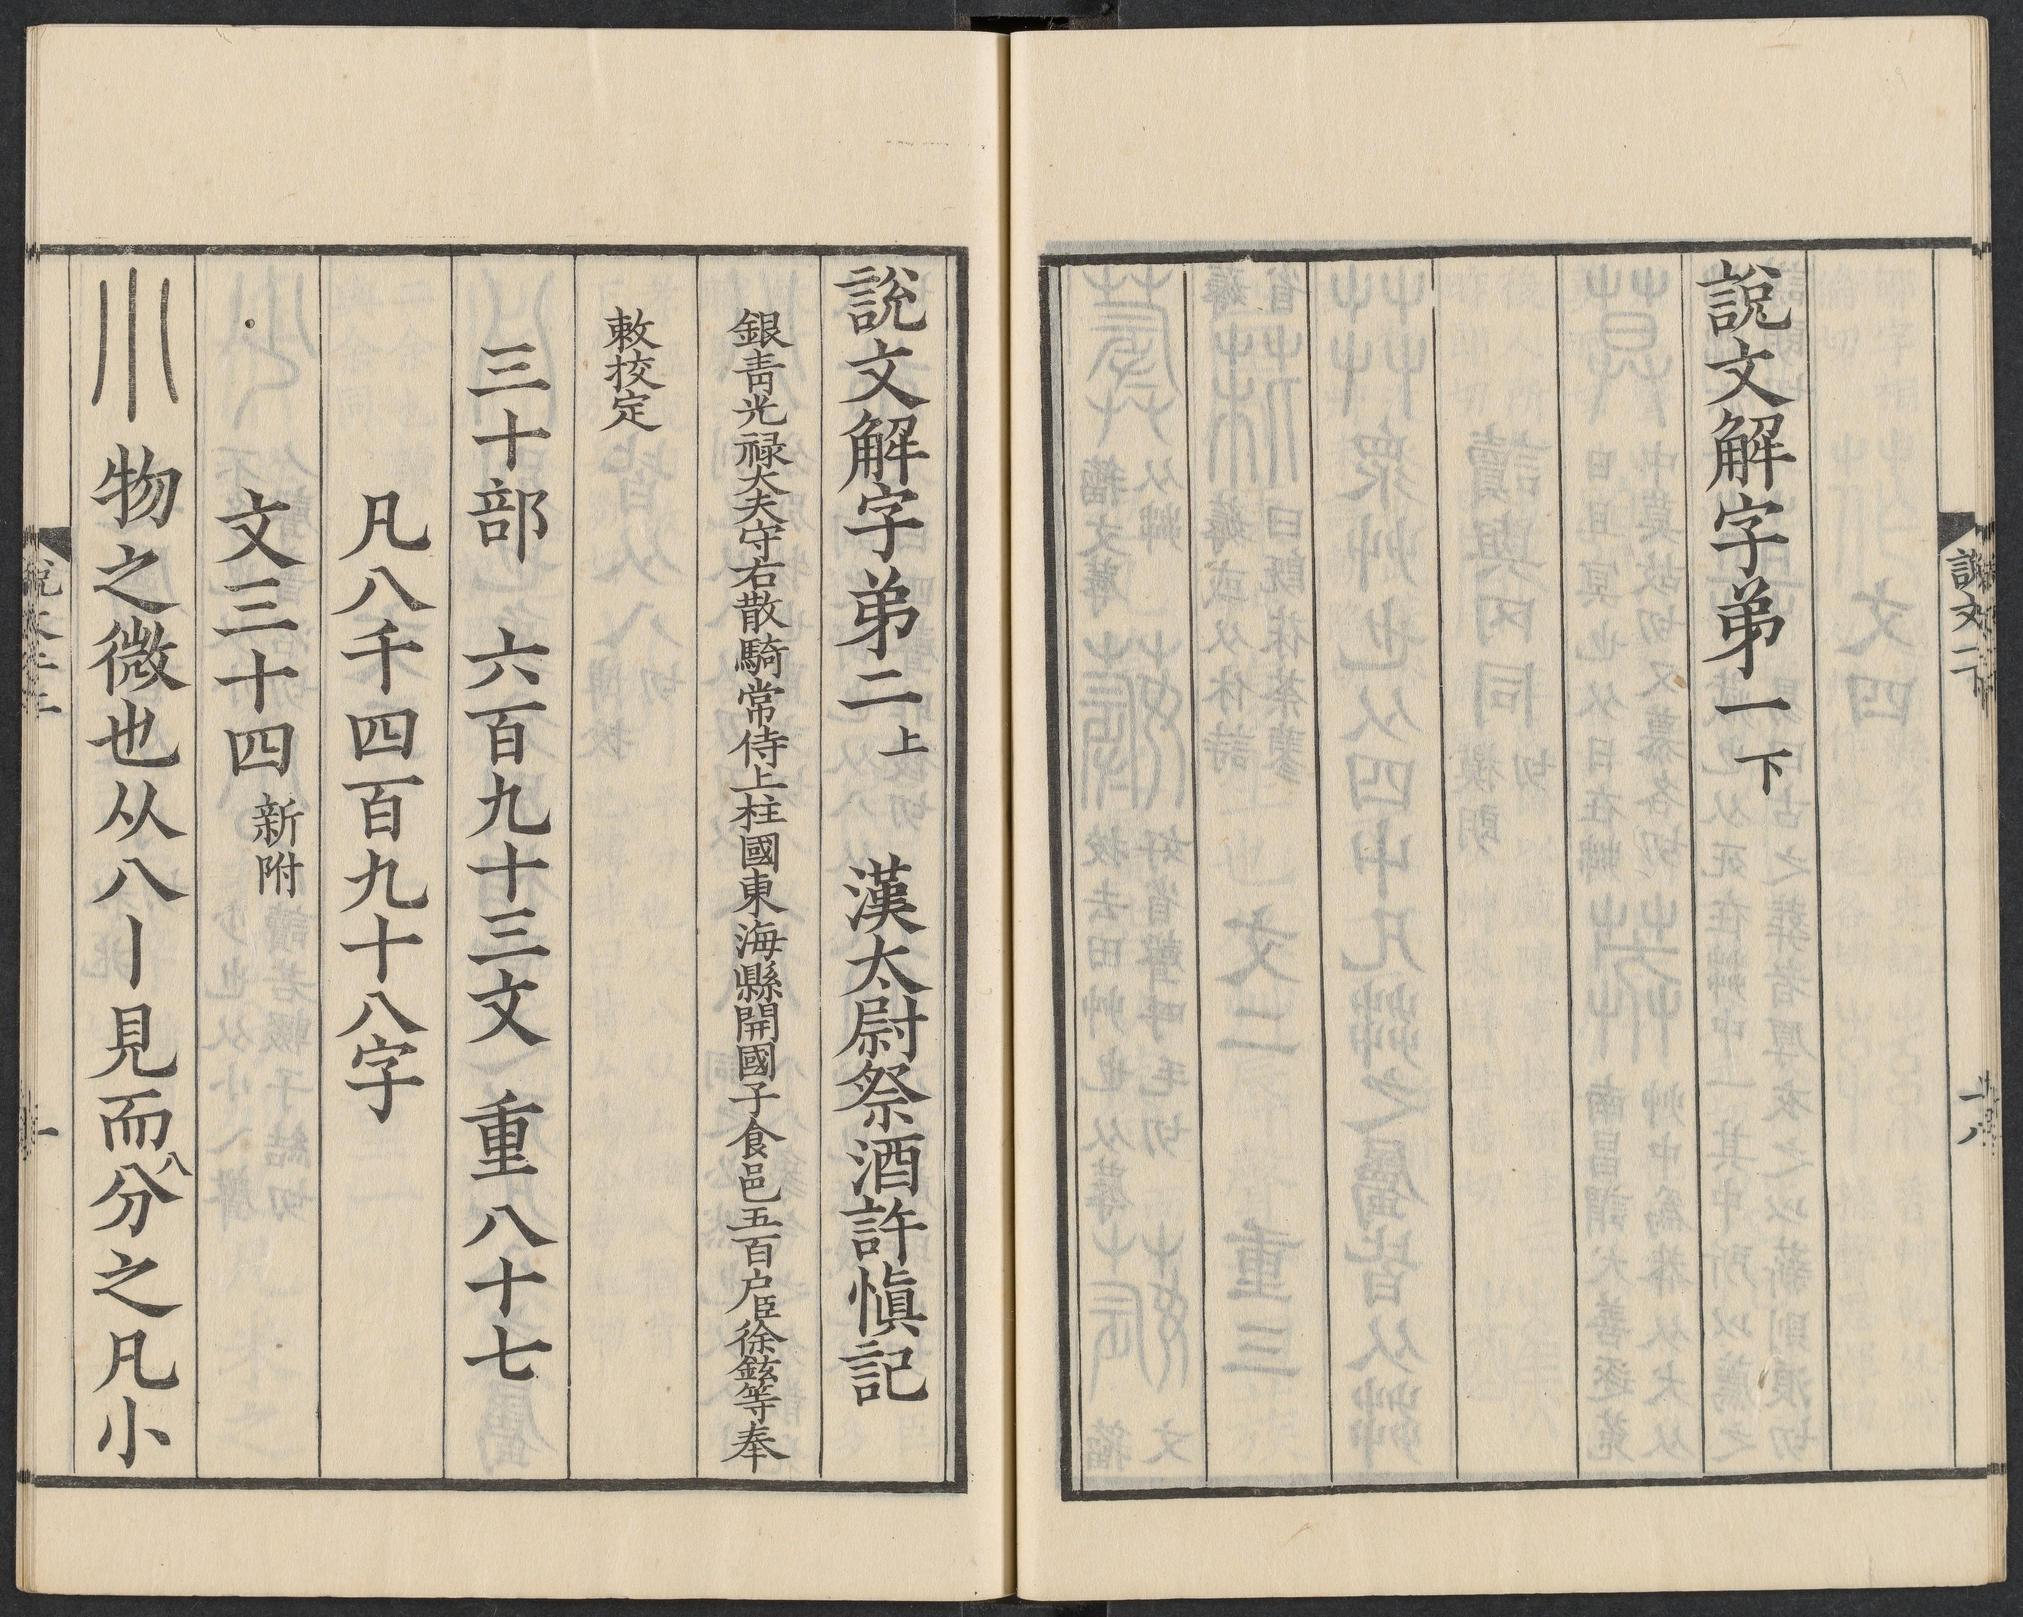 說文解字弟一下
說文一下
十八
說文解字弟二上 漢太尉祭酒許愼記
銀青光祿大夫守右散騎常侍上柱國東海縣開國子食邑五百户臣徐鉉等奉
敕挍定
三十部 六百九十三文 重八十七
凡八千四百九十八字
文三十四新附
川 物之微也从八丨見而八分之凡小